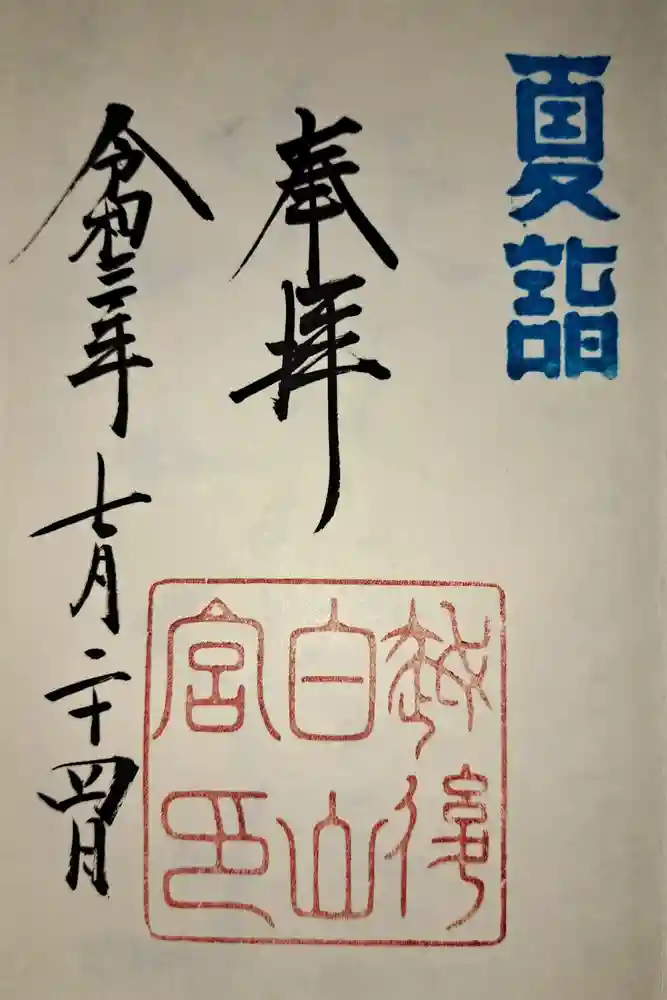 夏詣
奉拝
令和三年七月二十四日
越後
白山
宮印